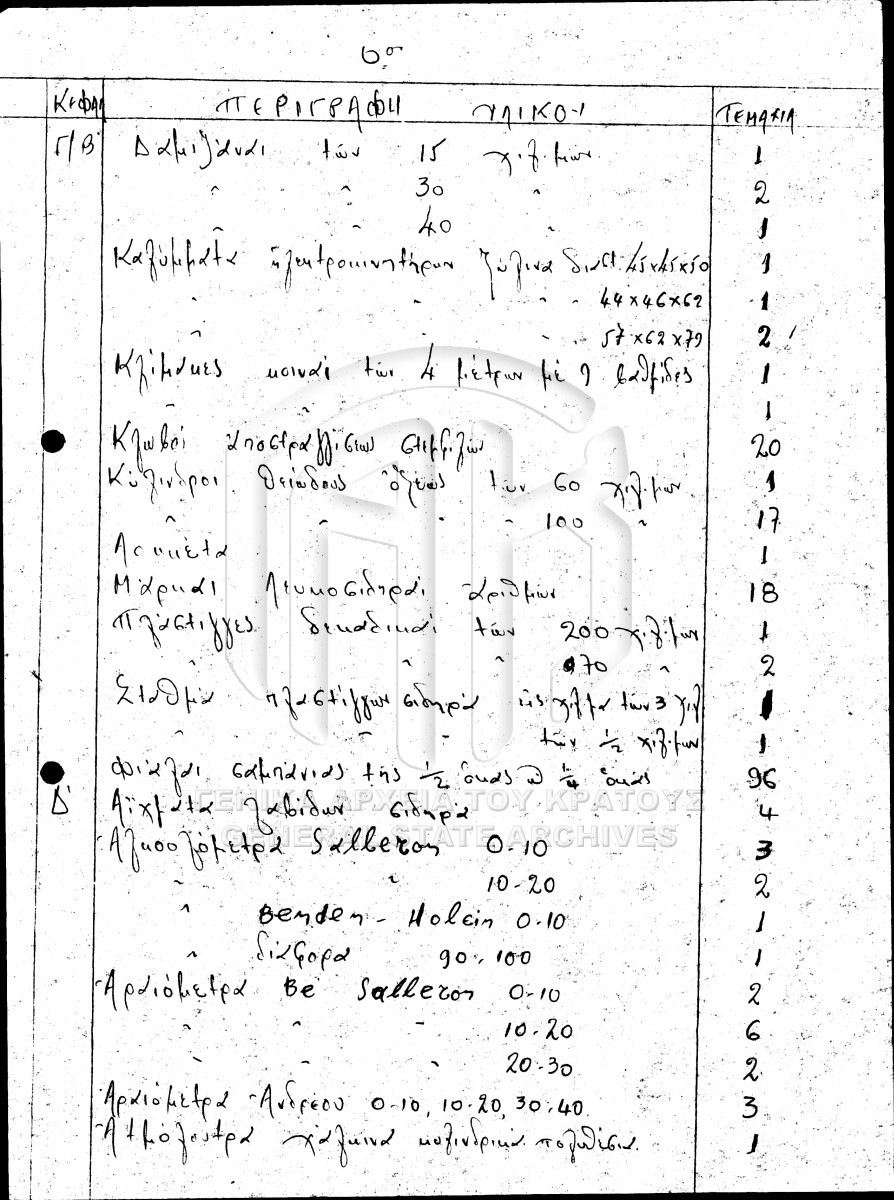 6ον
ΚΕΦΑΛ ΠΕΡΙΓΡΑΦΗ ΥΛΙΚΟΥ ΤΕΜΑΧΙΑ
Γ/Β Δαμιζάναι τών 15 χιλ/μων 1
" " 30 " 2
" " 40 " 1
Καλύμματα ηλεκτροκινητήρων ξύλινα διαστ. 45x45x50 1
" " " " 44x46x62 1
" " " " 57x62x79 2
Κλίμακες κοιναί τών 4 μέτρων μέ 9 βαθμίδες 1
" " 1
Κλωβοί αποστραγγίσεως στεμφύλων 20
Κύλινδροι θειώδους οξέως τών 60 χιλ/μων 1
" " " " 100 " 17
Λασκέτα 1
Μάρκαι λευκοσιδηραί αριθμών 18
Πλάστιγγες δεκαδικαί τών 200 χιλ/μων 1
" " " 70 " 2
Σταθμά πλαστίγγων σιδηρά εις χιλ/μα τών 3 χιλ 1
" " " τών 1/2 χιλ/μων 1
Φιάλαι σαμπάνιας τής 1/2 οκάς 1/4 οκάς 96
ΓΕΝΙΚΑ ΑΡΧΕΙΑ ΤΟΥ ΚΡΑΤΟΥΣ
Δ' Αιχμάτα λαβίδων σιδηρά 4
GENERAL STATE ARCHIVES
Αλκοολόμετρα Salleron 0-10 3
" " 10-20 2
" Benden - Holein 0-10 1
" διάφορα 90-100 1
Αραιόμετρα Be Salleron 0-10 2
" " " 10-20 6
" " " 20-30 2
Αραιόμετρα Ανδρέου 0-10, 10-20, 30-40 3
Ατμόλουτρα χάλκινα κυλινδρικά πολυθέσια. 1